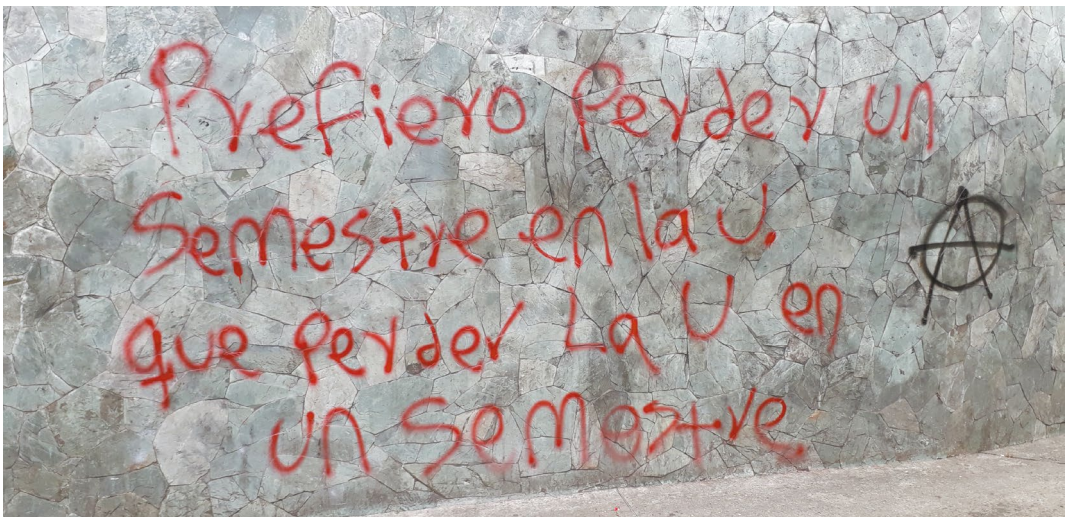 Prefiero Perder un
Semestre en la U.
que Perder La U en
un semestre